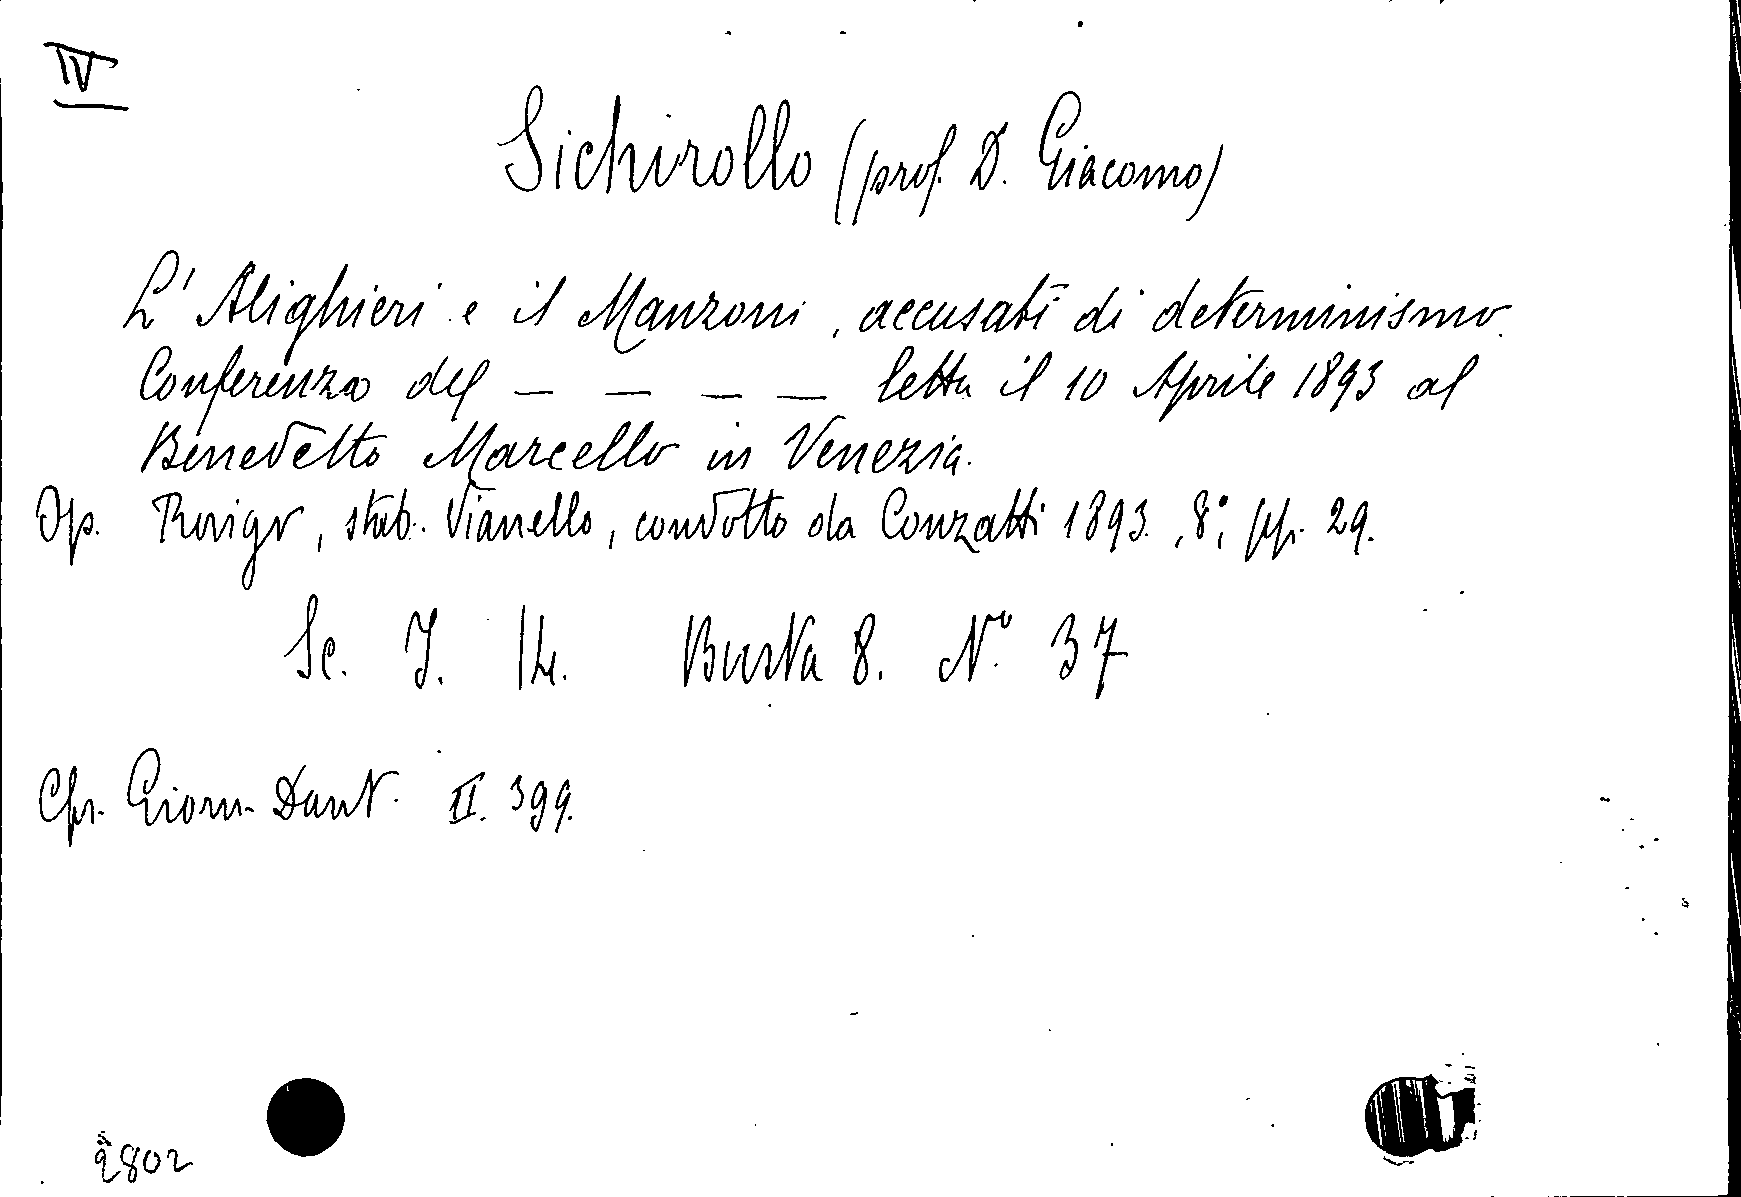 IV
Sichirollo (prof. D. Giacomo)
L'Alighieri e il Manzoni, accusati di determinismo.
Conferenza del _ _ _ _ letta il 10 Aprile 1893 al
Benedetto Marcello in Venezia.
Op. Rovigo, stab. Vianello, condotto da Conzatti 1893., 8°, pp. 29.
Sc. I. 14. Busta 8. N° 37
Cfr. Giorn. Dant. II. 399.
2802